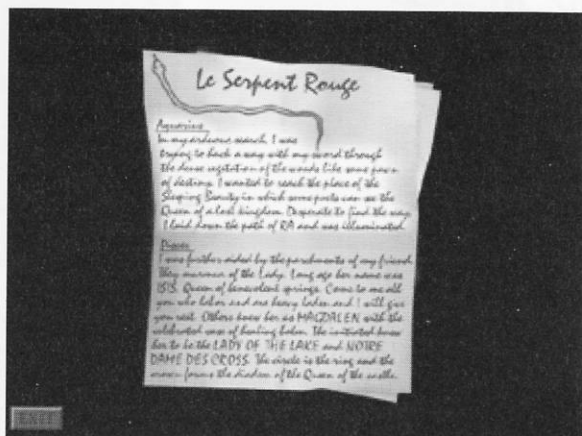 Le Serpent Rouge
Aquarius
In my arduous search, I was
trying to hack a way with my sword through
the dense vegetation of the woods like some pawn
of destiny. I wanted to reach the place of the
Sleeping Beauty in which some poets can see the
Queen of a lost kingdom. Desperate to find the way
I laid down the path of RA and was illuminated.
Pisces
I was further aided by the parchments of my friend.
They murmur of the Lady. Long ago her name was
ISIS, Queen of benevolent springs. Come to me all
you who labor and are heavy laden and I will give
you rest. Others knew her as MAGDALEN with the
celebrated vase of healing balm. The initiated knew
her to be the LADY OF THE LAKE and NOTRE
DAME DES CROSS. The circle is the ring and the
crown forms the diadem of the Queen of the castle.
EXIT